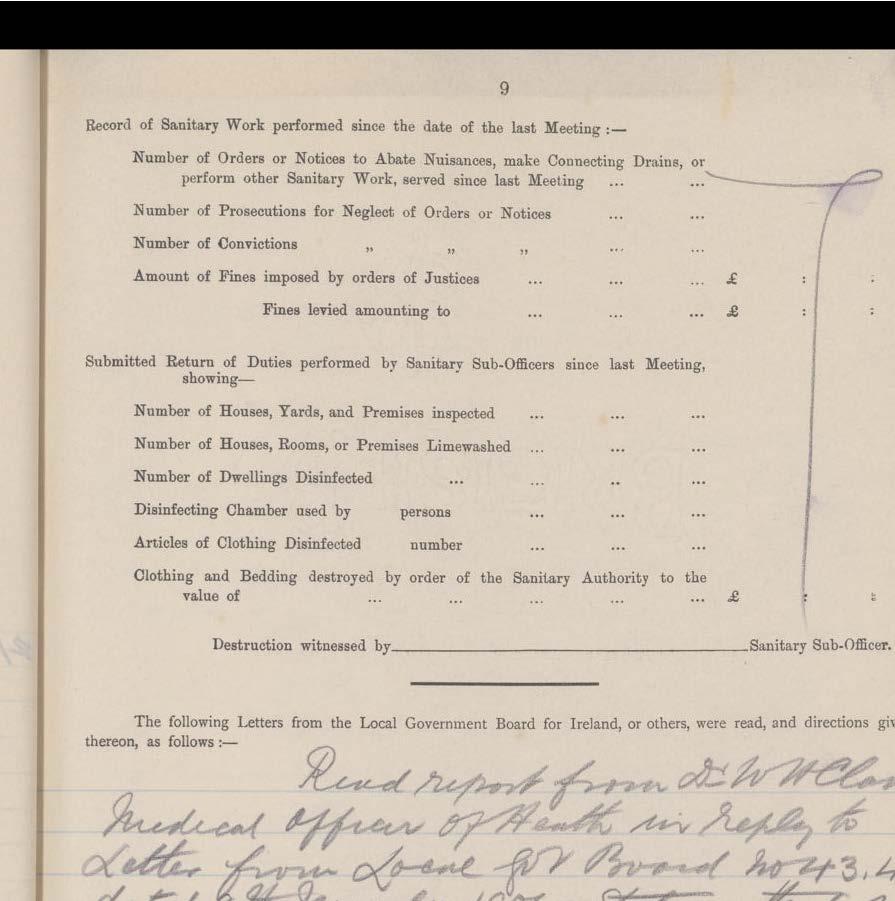 9
Record of Sanitary Work performed since the date of the last Meeting :—
Number of Orders or Notices to Abate Nuisances, make Connecting Drains, or
perform other Sanitary Work, served since last Meeting ... ...
Number of Prosecutions for Neglect of Orders or Notices ... ...
Number of Convictions „ „ „ ... ...
Amount of Fines imposed by orders of Justices ... ... ... £ : :
Fines levied amounting to ... ... ... £ : :
Submitted Return of Duties performed by Sanitary Sub-Officers since last Meeting,
showing—
Number of Houses, Yards, and Premises inspected ... ... ...
Number of Houses, Rooms, or Premises Limewashed ... ... ...
Number of Dwellings Disinfected ... ... .. ...
Disinfecting Chamber used by persons ... ... ...
Articles of Clothing Disinfected number ... ... ...
Clothing and Bedding destroyed by order of the Sanitary Authority to the
value of ... ... ... ... ... £ : :
Destruction witnessed by Sanitary Sub-Officer.
The following Letters from the Local Government Board for Ireland, or others, were read, and directions giv
thereon, as follows :—
Read report from Dr W H
Medical Officer of Health in reply to
Letter from Local Gov Board No 43.4